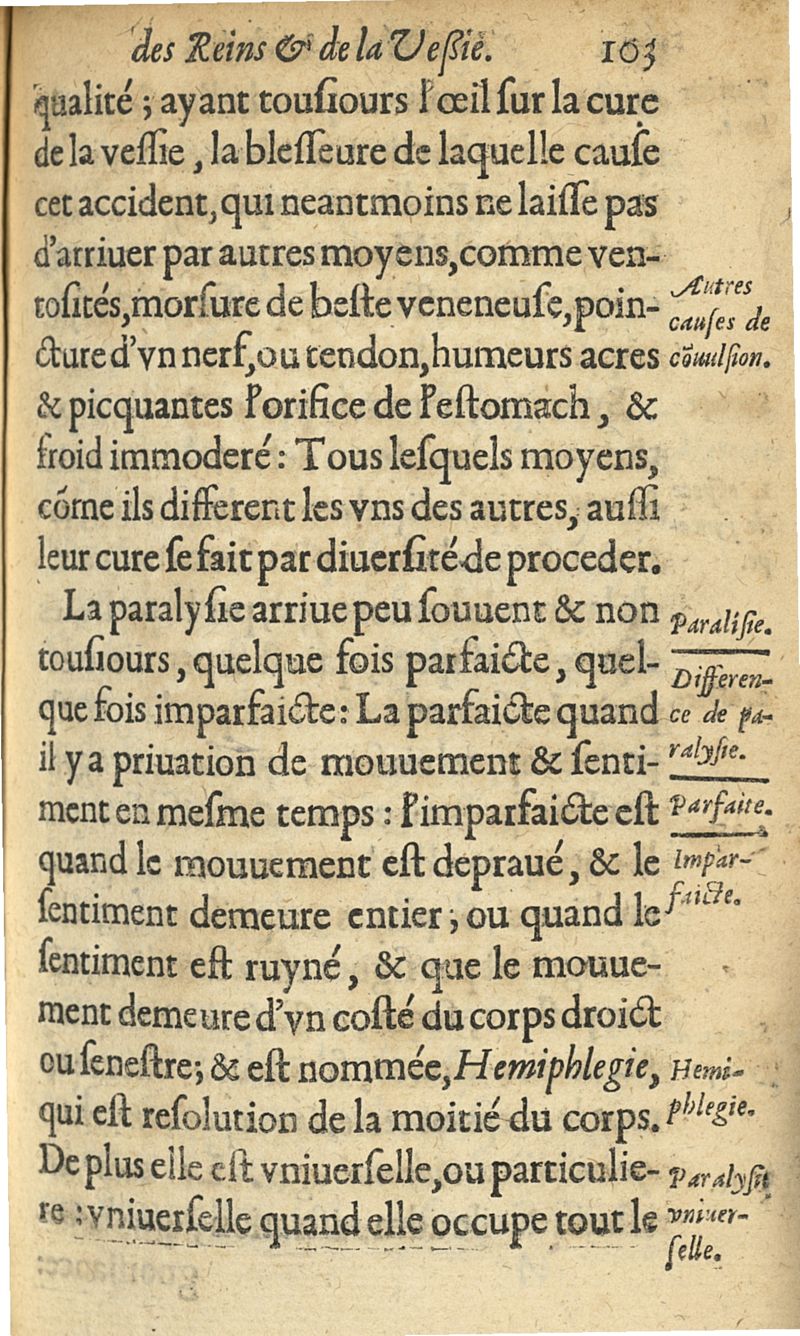 des Reins & de la Veſſie. 103
qualité ; ayant touſiours l'œil ſur la cure
de la veſſie, la bleſſeure de laquelle cauſe
cet accident, qui neantmoins ne laiſſe pas
d'arriuer par autres moyens, comme ven-
toſités, morſure de beſte veneneuſe, poin-
cture d'vn nerf, ou tendon, humeurs acres
& picquantes l'orifice de l'eſtomach, &
froid immoderé : Tous leſquels moyens,
cõme ils different les vns des autres, auſſi
leur cure ſe fait par diuerſité de proceder.
La paralyſie arriue peu ſouuent & non
touſiours, quelque fois parfaicte, quel-
que fois imparfaicte : La parfaicte quand
il y a priuation de mouuement & ſenti-
ment en meſme temps : l'imparfaicte est
quand le mouuement eſt depraué, & le
ſentiment demeure entier ; ou quand le
ſentiment eſt ruyné, & que le mouue-
ment demeure d'vn coſté du corps droict
ou ſeneſtre ; & eſt nommée, Hemiphlegie,
qui eſt reſolution de la moitié du corps.
De plus elle eſt vniuerſelle, ou particulie-
re : vniuerſelle quand elle occupe tout le
Autres
cauſes de
cõuulſion.
Paraliſie.
Differen-
ce de pa-
ralyſie.
Parfaite.
Impar-
faicte.
Hemi-
phlegie.
Paralyſie
vniuer-
ſelle.